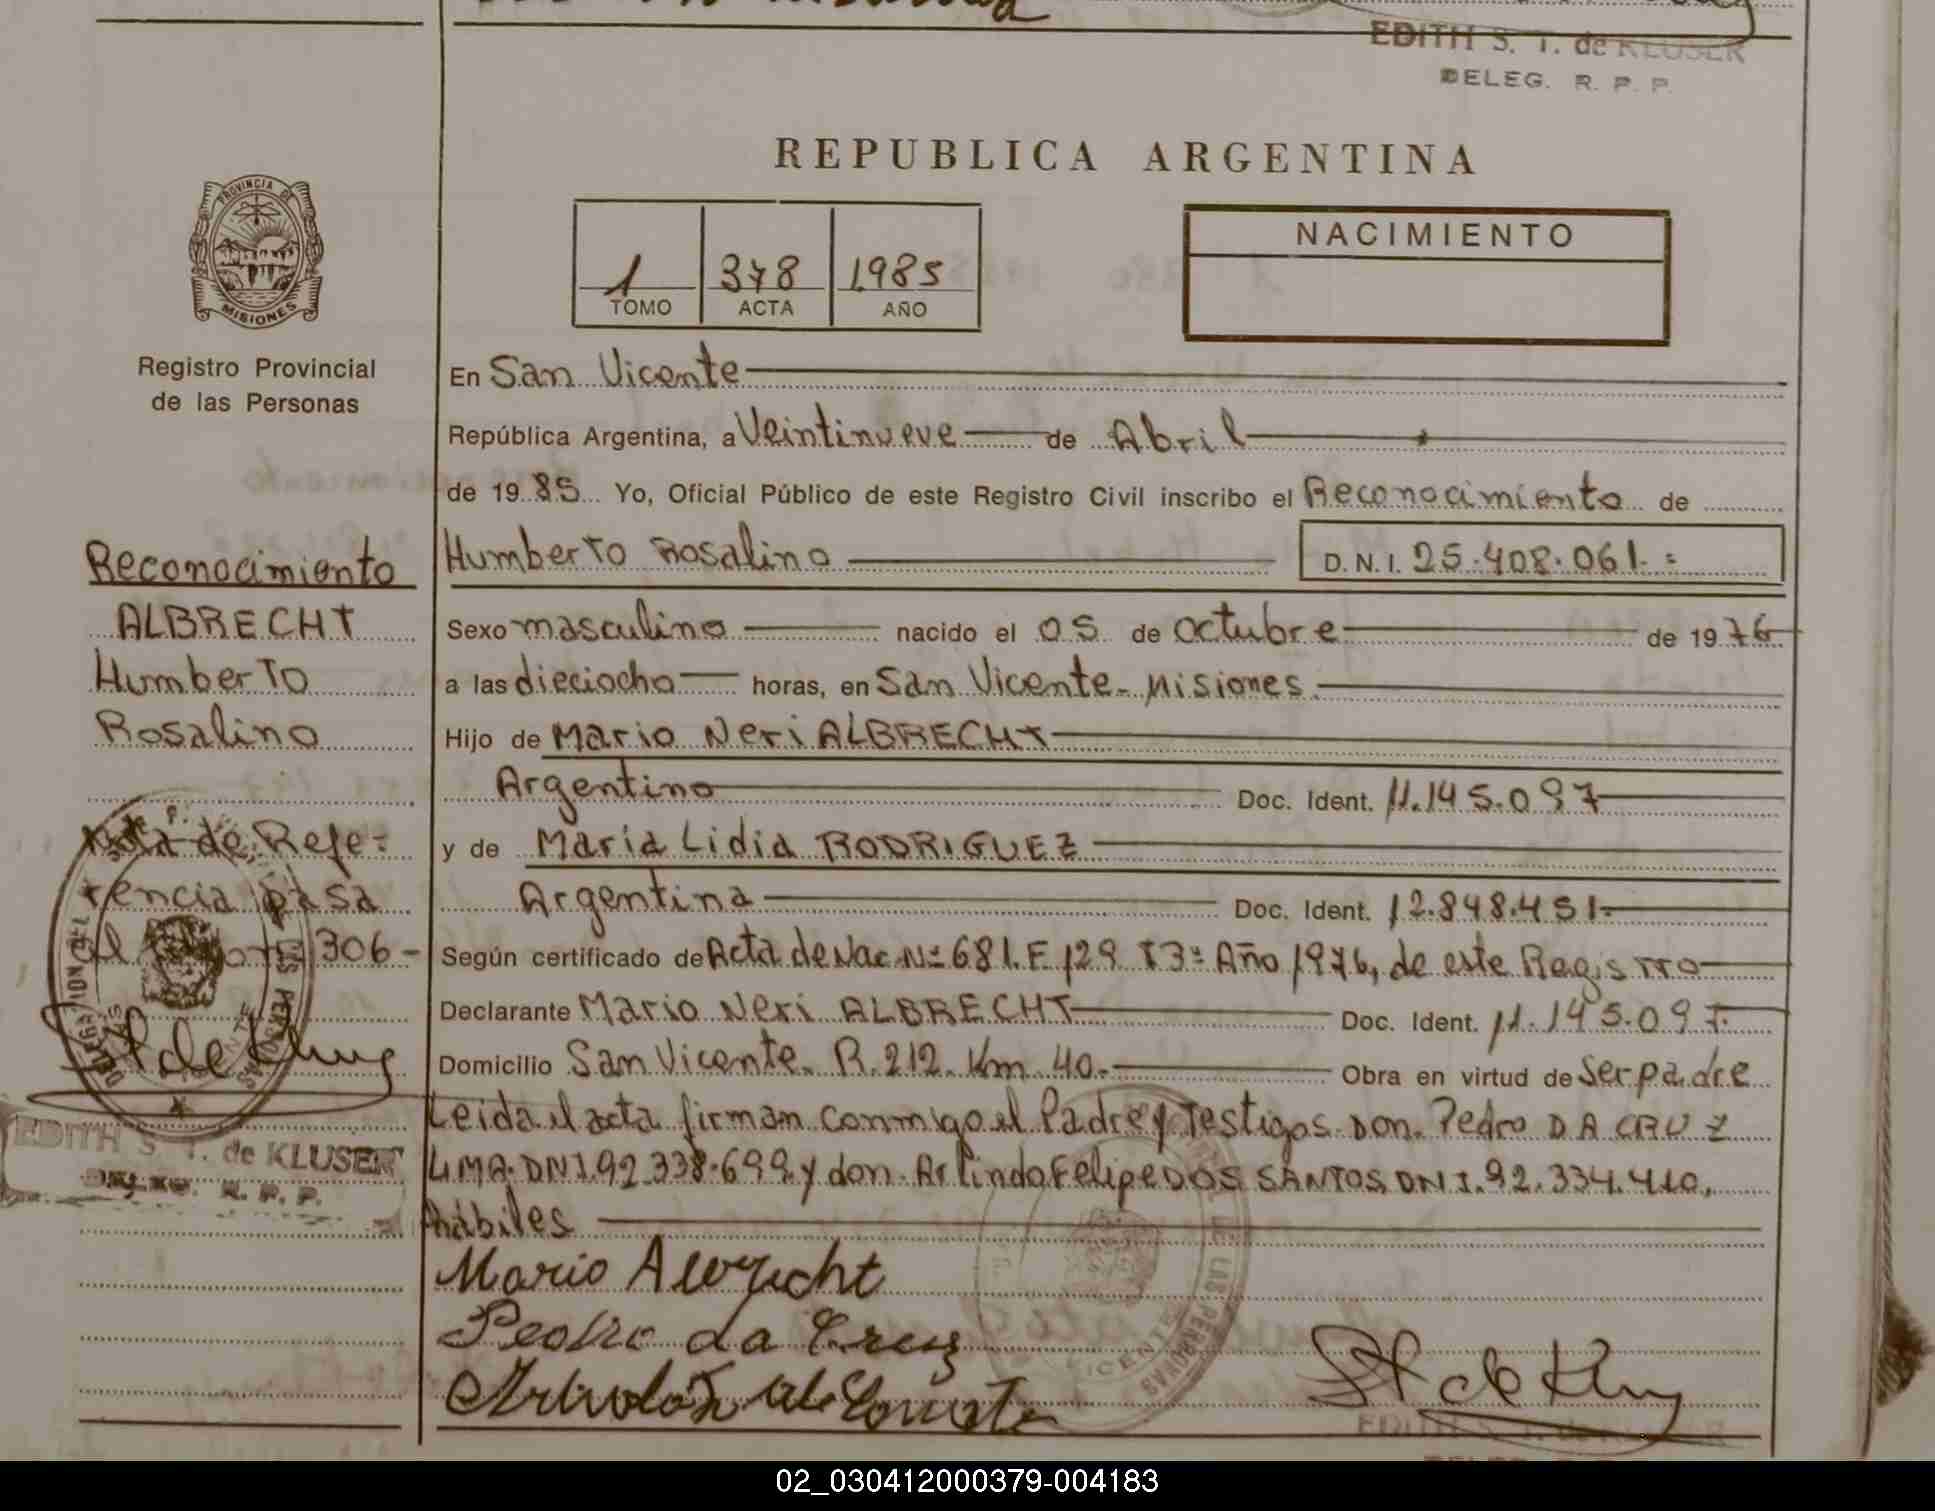 EDITH S. T. de KLUSER
DELEG. R. P. P.
REPUBLICA ARGENTINA
PROVINCIA DE
MISIONES
Registro Provincial
de las Personas
1 378 1985
TOMO ACTA AÑO
NACIMIENTO
En San Vicente
República Argentina, a Veintinueve de Abril
de 1985 Yo, Oficial Público de este Registro Civil inscribo el Reconocimiento de
Humberto Rosalino D.N.I. 25.408.061.=
Sexo masculino nacido el 05 de octubre de 1976
a las dieciocho horas, en San Vicente- Misiones.
Hijo de Mario Neri ALBRECHT
Argentino Doc. Ident. 11.145.097
y de Maria Lidia RODRIGUEZ
Argentina Doc. Ident. 12.848.451.
Según certificado de Acta de Nac. Nº 681. F 129 T3º Año 1976, de este Registro
Declarante Mario Neri ALBRECHT Doc. Ident. 11.145.097.
Domicilio San Vicente. R.212. Km 40.- Obra en virtud de Ser padre
Leida el acta firman conmigo el Padre y Testigos Don. Pedro DA CRUZ
LIMA. DNI.92.338.699. y don. Arlindo Felipe DOS SANTOS DNI.92.334.410,
hábiles
Mario Albrecht
Pedro da Cruz
Reconocimiento
ALBRECHT
Humberto
Rosalino
Nota de Refe-
rencia pasa
al 306-
EDITH S. T. de KLUSER
DELEG. R. P. P.
02_030412000379-004183